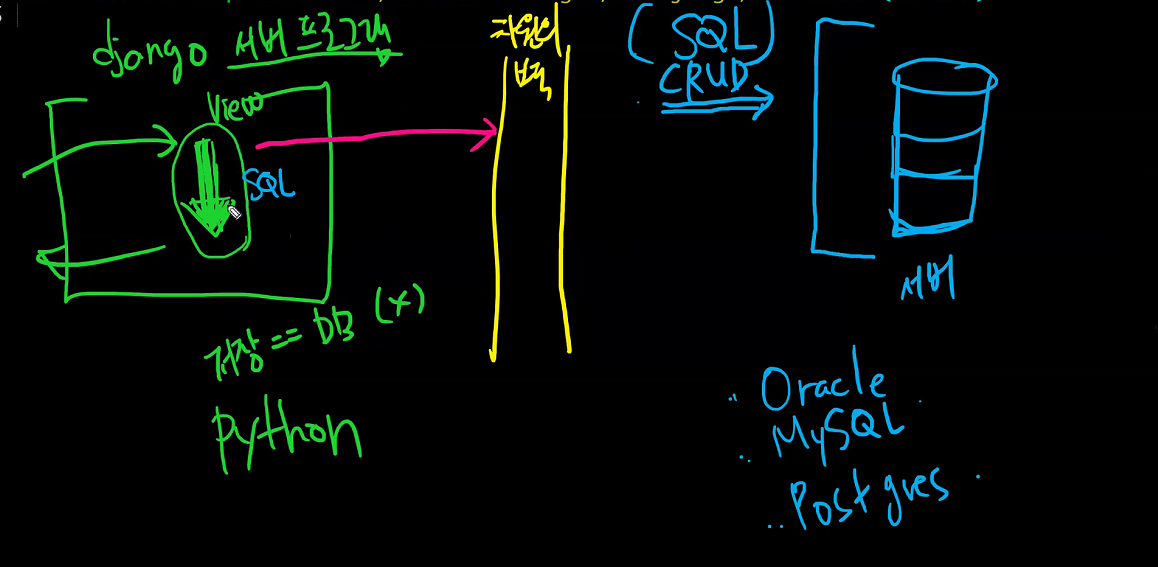 django 서버 프로그램
View
SQL
저장 == DB (x)
Python
차원의
벽
(SQL)
CRUD
서버
Oracle
MySQL
Postgres